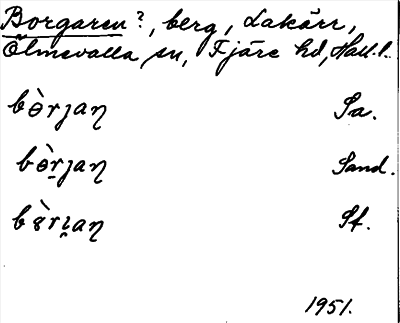 Borgaren?, berg, Lakärr,
Ölmevalla sn, Fjäre hd, Hall.l.
bòrȷaƞ Sa.
bòrȷaƞ Sand.
bòrı̣aƞ Sf.
1951.